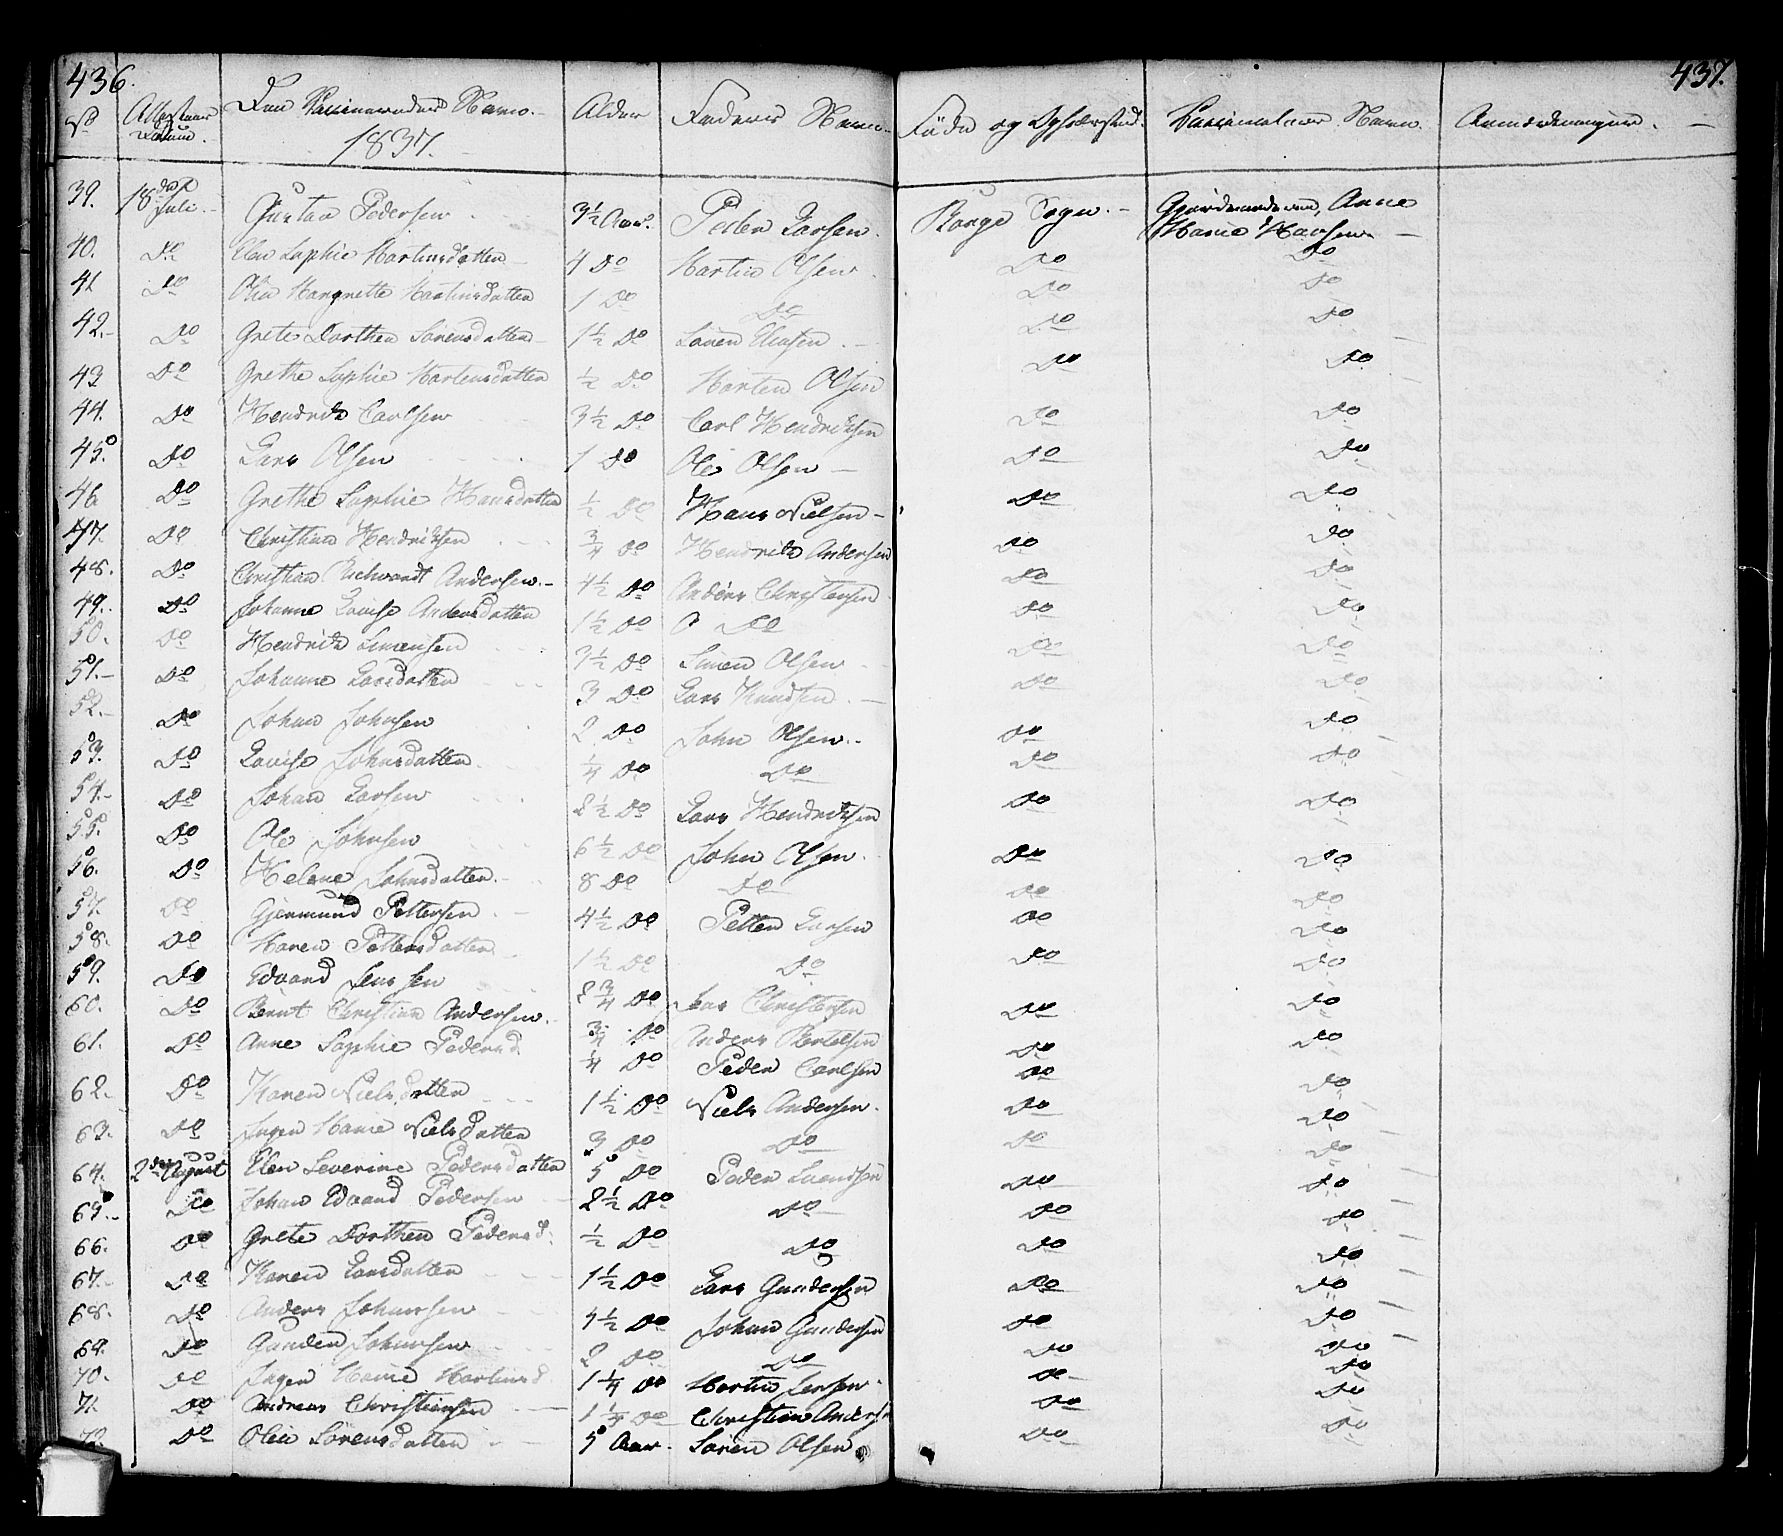 436.
437.
No Attestens Datum. Den Vaccineredes Navn. Alder Faders Navn. Føde og Opholdssted. Vaccinateur Navn. Anmærkninger. —
1837.
39. 18de Juli. Gustav Pedersen 3½ Aar. Peder Larsen. Borge Sogn. — Gjordemoderen, Anne
Marie Hansen. —
40. Do Elen Sophie Martinsdatter 4 Do Martin Olsen. Do Do
41 Do Olia Margrethe Martinsdatter 1 Do Do Do Do
42. Do Grete Dorthea Sørensdatter 1½ Do Søren Do Do
43 Do Grethe Sophie Mortensdatter ½ Do Morten Olsen Do Do
44. Do Hendrik Carlsen 3½ Do Carl Hendriksen Do Do
45. Do Lars Olsen 1 Do Ole Olsen — Do Do
46 Do Grethe Sophie Hansdatter ½ Do Hans Nielsen — Do Do
47. Do Christian Hendriksen ¾ Do Hendrik Andersen Do Do
48. Do Christian Andersen. 4½ Do Anders Christensen Do Do
49. Do Johanne Lovise Andersdatter 1½ Do Do Do Do
50. Do Hendrik Simensen 3½ Do Simen Olsen Do Do
51. Do Johanne Larsdatter 3 Do Lars Knudsen. — Do Do
52. Do Johan Johnsen 2 Do John Olsen. Do Do
53. Do Lovise Johnsdatter ¼ Do Do Do Do
54. Do Johan Larsen 2½ Do Lars Hendriksen Do Do
55. Do Ole Johnsen 6½ Do John Olsen. Do Do
56. Do Helene Johnsdatter. 8 Do Do Do Do
57. Do Gjermund Pettersen 4½ Do Petter Larsen Do Do
58. Do Maren Pettersdatter 1½ Do Do Do Do
59. Do Edvard Jensen 2¾ Do Jens Christensen Do
60. Do Bernt Christian Andersen. ¾ Do Anders Bertelsen Do Do
61. Do Anne Sophie Pedersd. ¼ Do Peder Carlsen Do Do
62. Do Maren Nielsdatter 1½ Do Niels Andersen. Do Do
63. Do Inger Marie Nielsdatter 3 Do Do Do Do
64. 2den August Elen Severine Pedersdatter 5 Do Peder Svendsen Do Do
65. Do Johan Edvard Pedersen 2½ Do Do Do Do
66. Do Grete Dorthea Pedersd. ½ Do Do Do Do
67. Do Maren Larsdatter 1½ Do Lars Gundersen Do Do
68. Do Anders Johansen 4½ Do Johan Gundersen Do Do
69. Do Gunder Johansen 2 Do Do Do Do
70. Do Inger Marie Martinsd. 1¼ Do Martin Jensen. Do Do
71. Do Andreas Christiansen 1¼ Do Christian Anders Do Do
72. Do Olia Sørensdatter 5 Aar. Søren Olsen Do Do